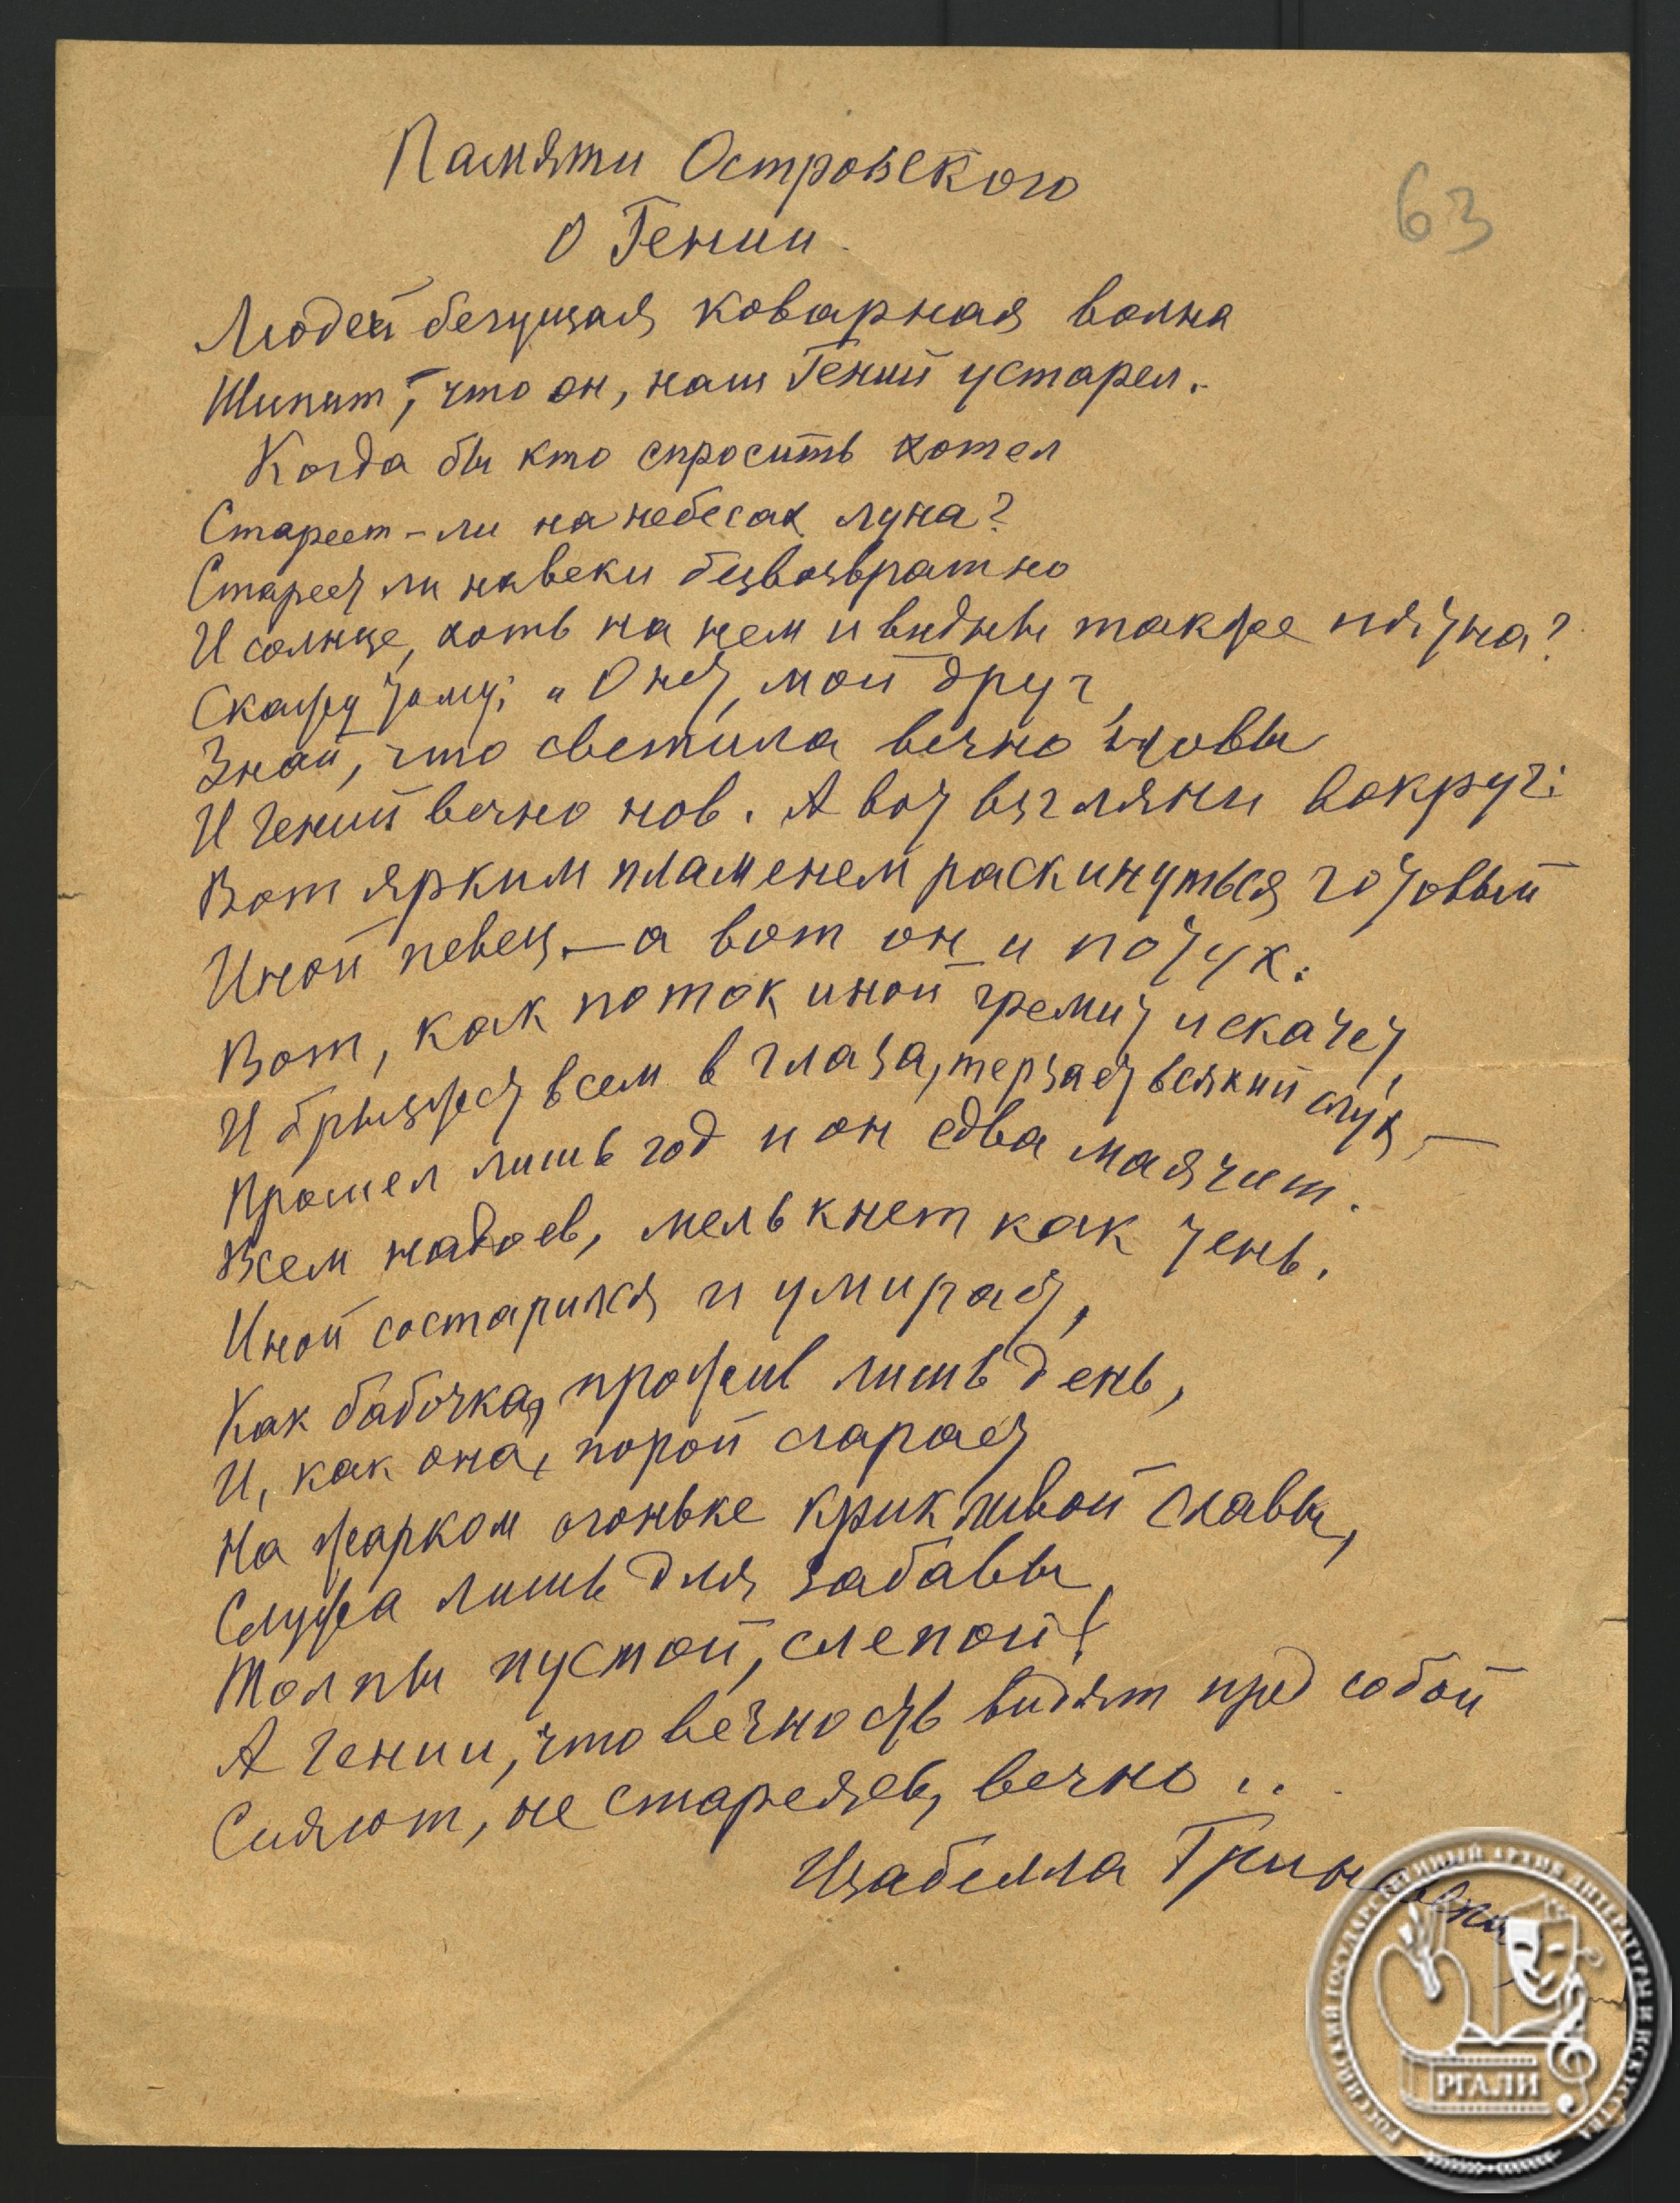 Памяти Островского
63
О Гении.
Людей бегущая коварная волна
Шипит, что он, наш Гений устарел.
Когда бы кто спросить хотел
Стареет-ли на небесах луна?
Стареет ли навеки безвозвратно
И солнце, хоть на нем и видны также пятна?
Скажу тому: „О нет, мой друг,
Знай, что светила вечно новы
И гений вечно нов. А вот взгляни вокруг:
Вот ярким пламенем раскинуться готовый
Иной певец. — а вот он и потух.
Вот, как поток иной гремит и скачет,
И брызжет всем в глаза, терзает всякий слух, —
Прошел лишь год и он едва маячит.
Всем надоев, мелькнет как тень.
Иной состарился и умирает,
Как бабочка, прожив лишь день,
И, как она, порой сгорает
На жарком огоньке крикливой славы,
Служа лишь для забавы
Толпы пустой, слепой!
А гении, что вечность видят пред собой
Сияют, не стареясь, вечно ..
Изабелла Гриневская
РОССИЙСКИЙ ГОСУДАРСТВЕННЫЙ АРХИВ ЛИТЕРАТУРЫ И ИСКУССТВА
РГАЛИ